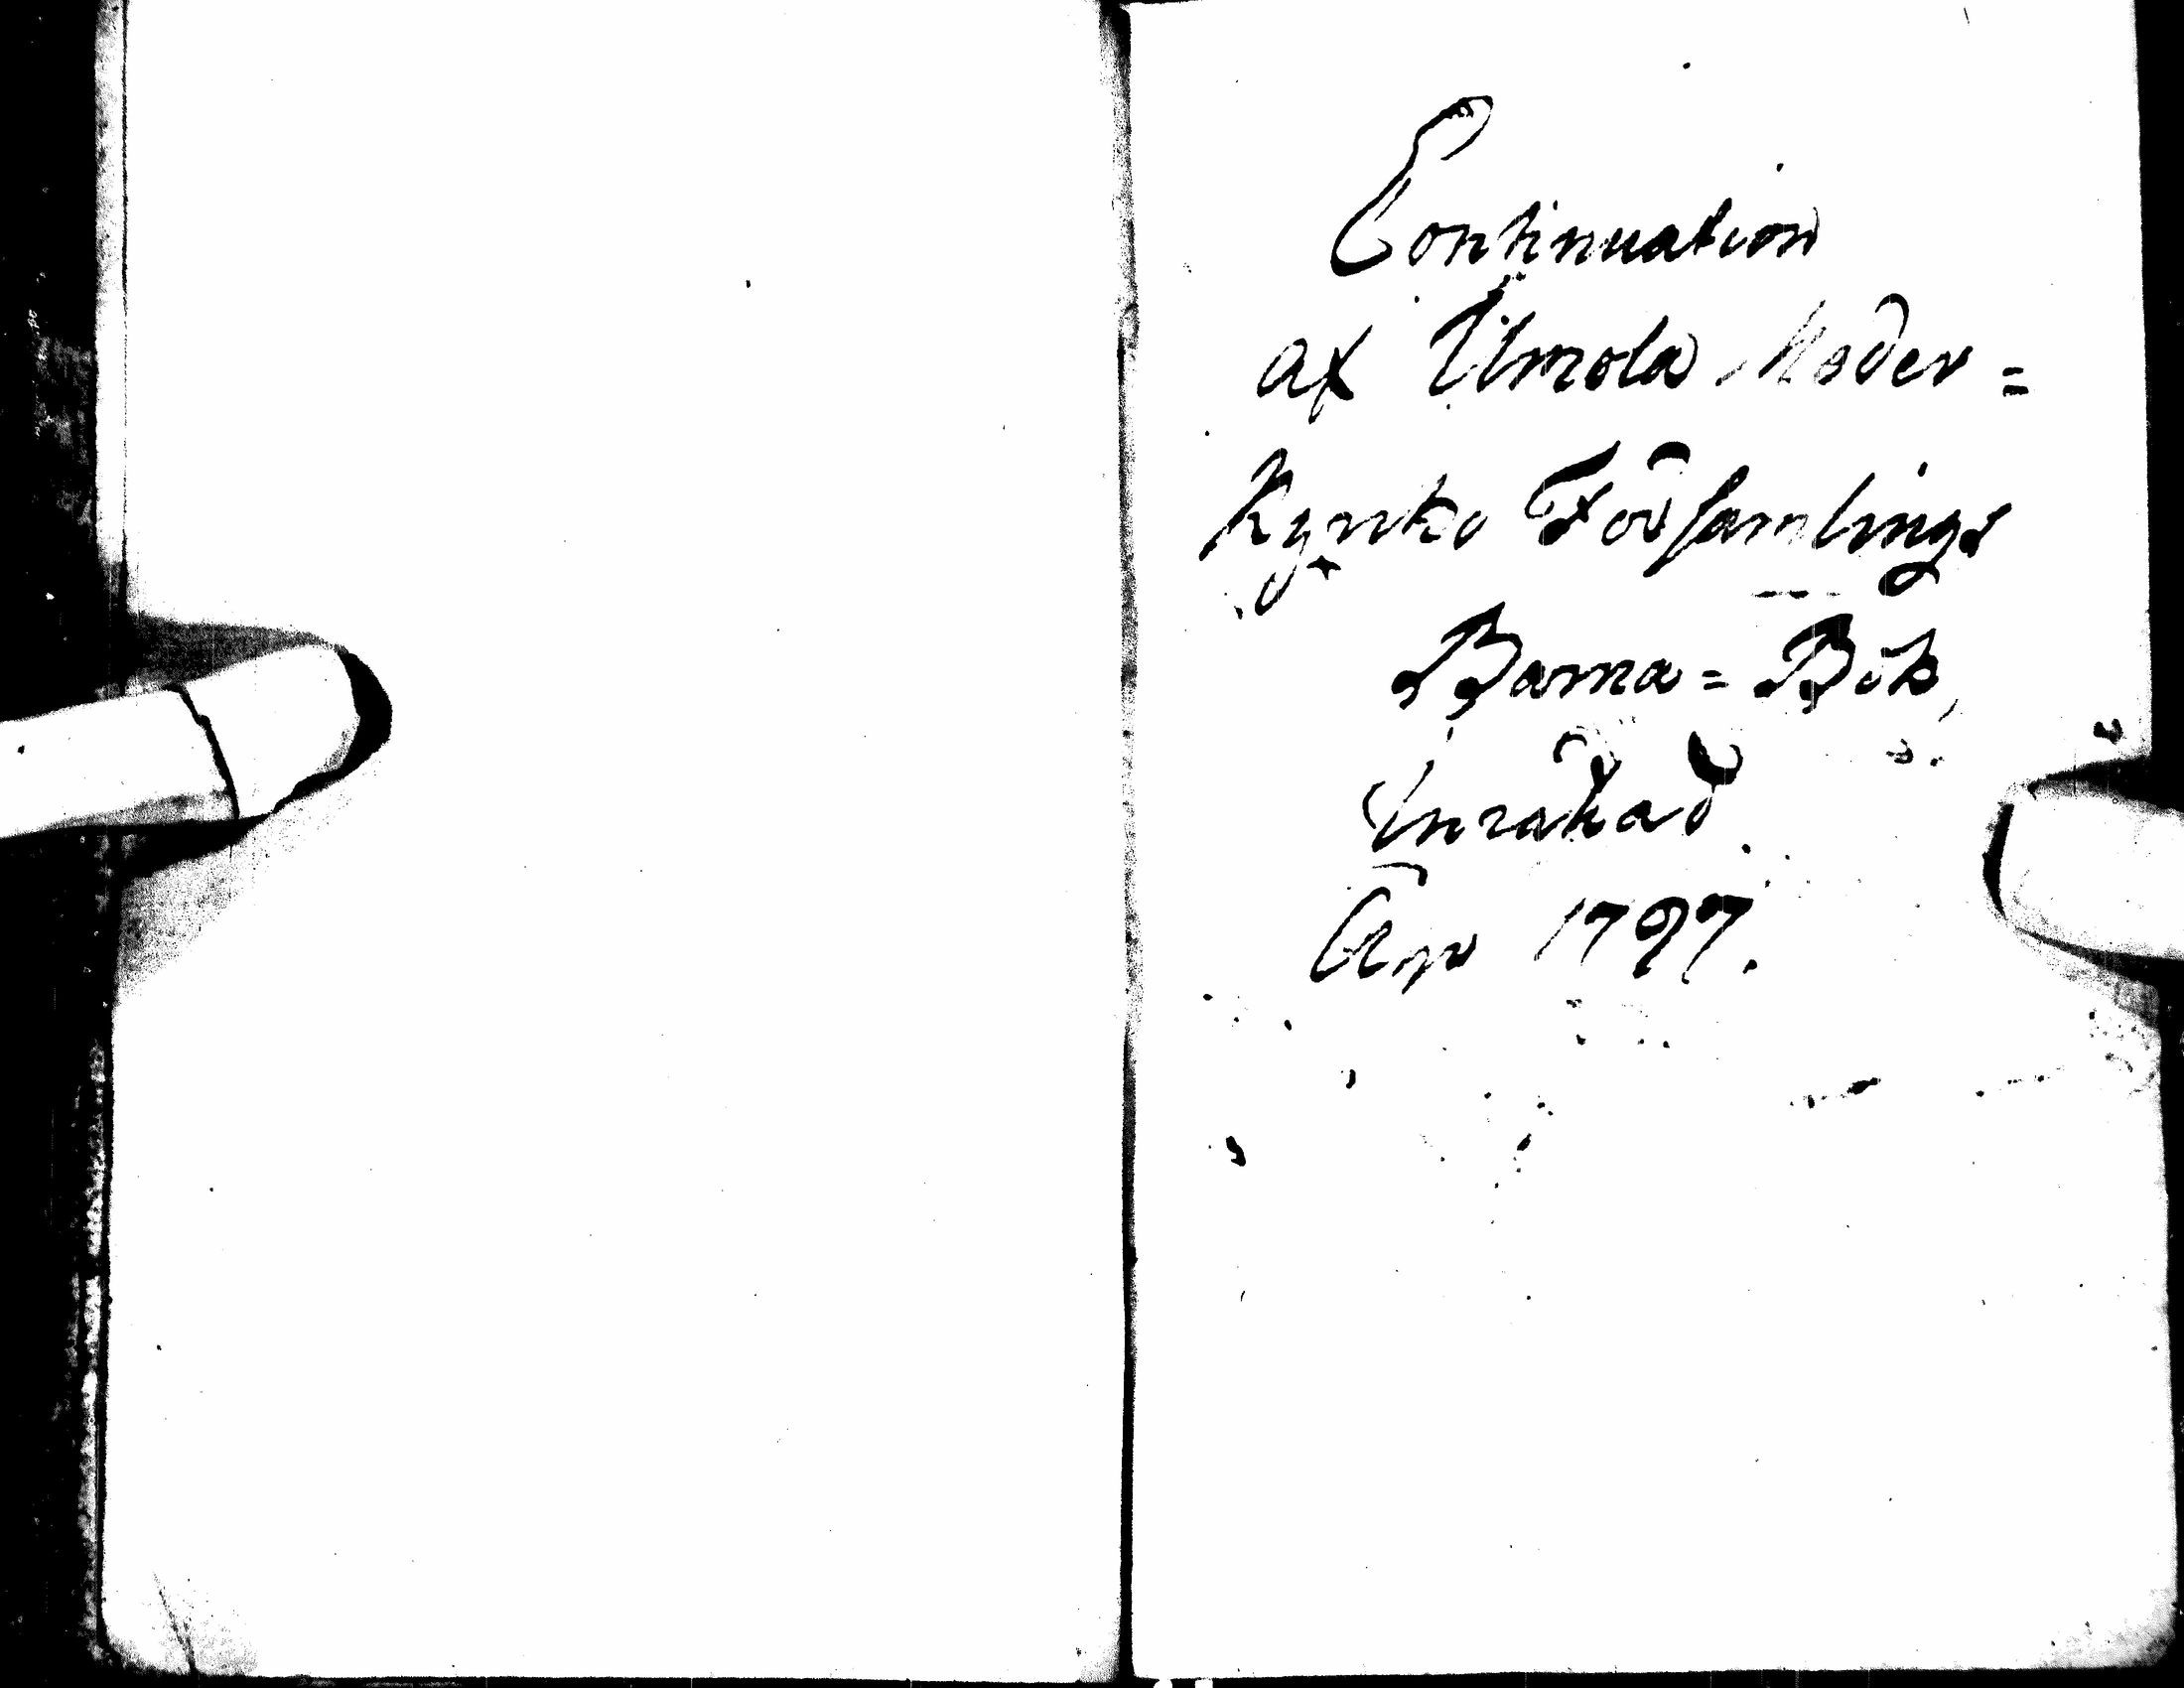 Continuation
af Ilmola Moder=
Kyrko Församlings
Barna=Bok,
Inrättad
År 1797.